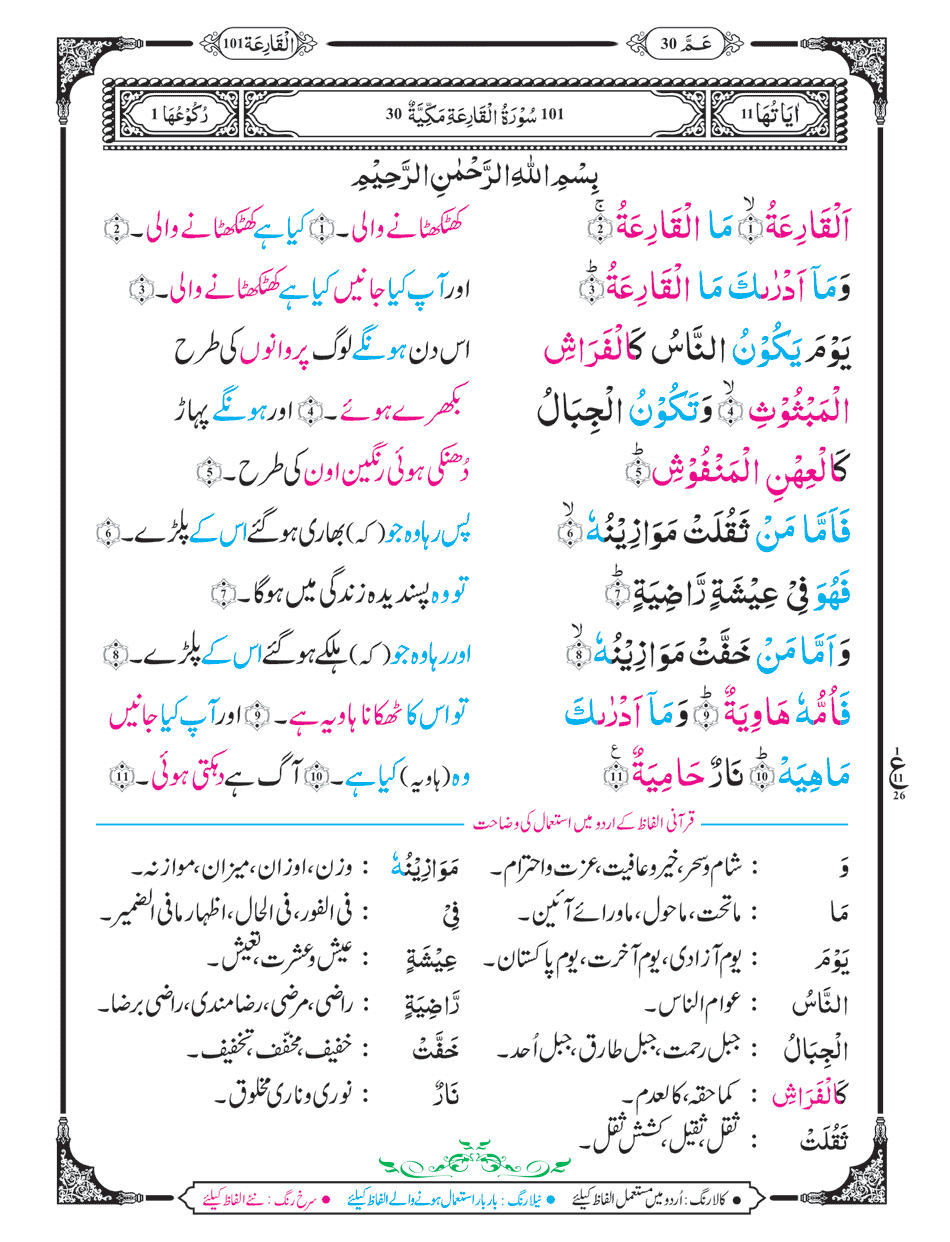 عَمَّ 30
اَلْقَارِعَة 101
اٰيَاتُهَا 11
101 سُوْرَةُ الْقَارِعَةِ مَكِّيَّةٌ 30
رُكُوْعُهَا 1
بِسْمِ اللهِ الرَّحْمٰنِ الرَّحِيْمِ
اَلْقَارِعَةُ ۙ﴿1﴾ مَا الْقَارِعَةُ ۚ﴿2﴾ کھٹکھٹانے والی۔﴿1﴾ کیا ہے کھٹکھٹانے والی۔﴿2﴾
وَمَآ اَدْرٰىكَ مَا الْقَارِعَةُ ؕ﴿3﴾ اور آپ کیا جانیں کیا ہے کھٹکھٹانے والی۔﴿3﴾
يَوْمَ يَكُوْنُ النَّاسُ كَالْفَرَاشِ اس دن ہونگے لوگ پروانوں کی طرح
الْمَبْثُوْثِ ۙ﴿4﴾ وَتَكُوْنُ الْجِبَالُ بکھرے ہوئے۔﴿4﴾ اور ہونگے پہاڑ
كَالْعِهْنِ الْمَنْفُوْشِ ؕ﴿5﴾ دُھنکی ہوئی رنگین اون کی طرح۔﴿5﴾
فَاَمَّا مَنْ ثَقُلَتْ مَوَازِيْنُهٗ ۙ﴿6﴾ پس رہا وہ جو (کہ) بھاری ہو گئے اس کے پلڑے۔﴿6﴾
فَهُوَ فِيْ عِيْشَةٍ رَّاضِيَةٍ ؕ﴿7﴾ تو وہ پسندیدہ زندگی میں ہوگا۔﴿7﴾
وَاَمَّا مَنْ خَفَّتْ مَوَازِيْنُهٗ ۙ﴿8﴾ اور رہا وہ جو (کہ) ہلکے ہو گئے اس کے پلڑے۔﴿8﴾
فَاُمُّهٗ هَاوِيَةٌ ؕ﴿9﴾ وَمَآ اَدْرٰىكَ تو اس کا ٹھکانا ہاویہ ہے۔﴿9﴾ اور آپ کیا جانیں
مَاهِيَهْ ؕ﴿10﴾ نَارٌ حَامِيَةٌ ﴿11﴾ع وہ (ہاویہ) کیا ہے۔﴿10﴾ آگ ہے دہکتی ہوئی۔﴿11﴾
1
ع 11
26
قرآنی الفاظ کے اردو میں استعمال کی وضاحت
وَ : شام وسحر، خیر و عافیت، عزت واحترام۔ مَوَازِيْنُهٗ : وزن، اوزان، میزان، موازنہ۔
مَا : ماتحت، ماحول، ماورائے آئین۔ فِيْ : فی الفور، فی الحال، اظہار مافی الضمیر۔
يَوْمَ : یوم آزادی، یوم آخرت، یوم پاکستان۔ عِيْشَةٍ : عیش وعشرت، تعیش۔
النَّاسُ : عوام الناس۔ رَّاضِيَةٍ : راضی، مرضی، رضامندی، راضی برضا۔
الْجِبَالُ : جبل رحمت، جبل طارق، جبل اُحد۔ خَفَّتْ : خفیف، مخفّف، تخفیف۔
كَالْفَرَاشِ : کماحقہ، کالعدم۔ نَارٌ : نوری و ناری مخلوق۔
ثَقُلَتْ : ثقل، ثقیل، کشش ثقل۔
● کالا رنگ : اُردو میں مستعمل الفاظ کیلئے ● نیلا رنگ : بار بار استعمال ہونے والے الفاظ کیلئے ● سرخ رنگ : نئے الفاظ کیلئے